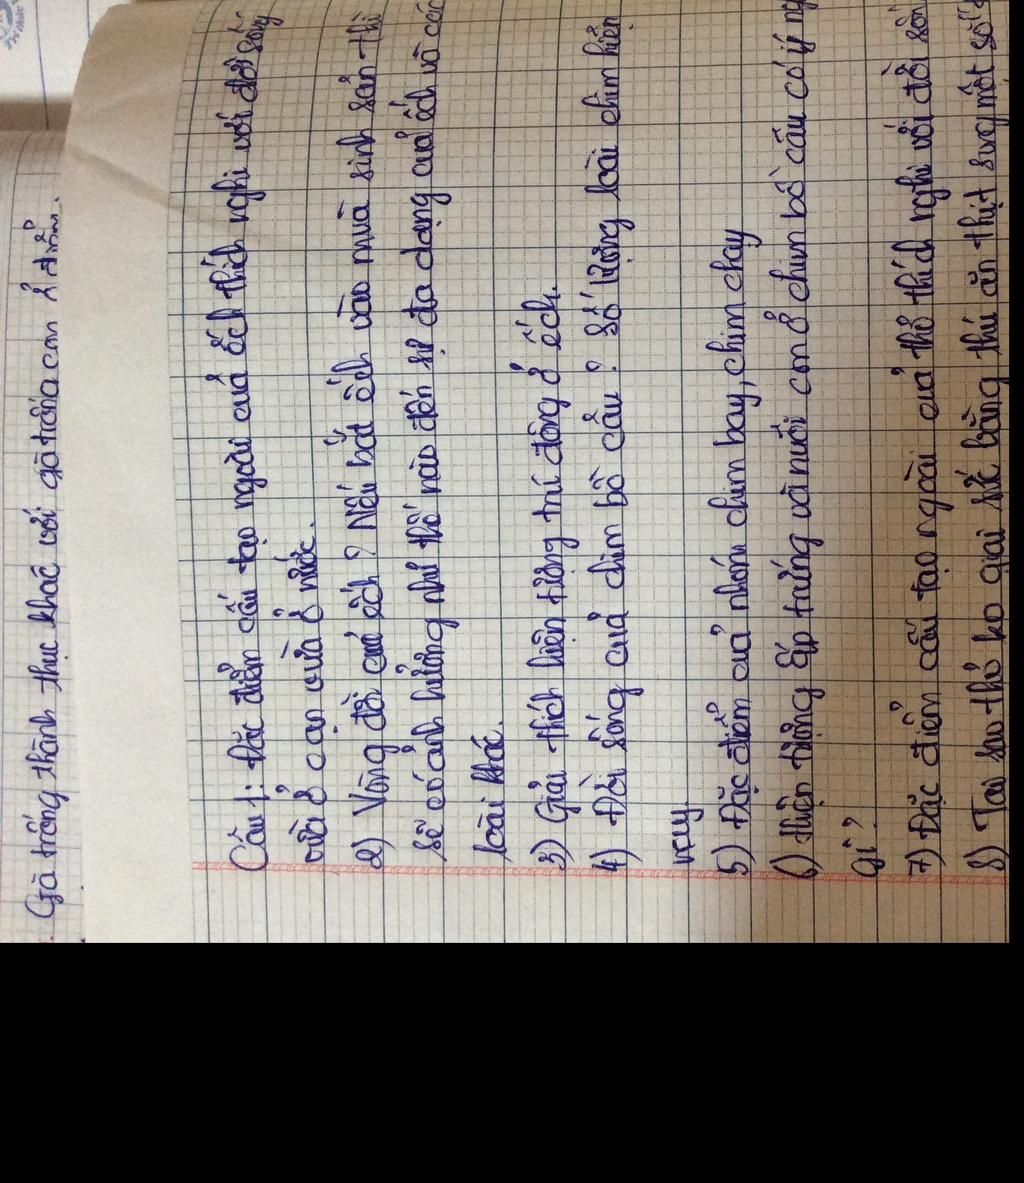 Gà trống thành thục khác với gà trống con ở điểm.
Câu 1: Đặc điểm cấu tạo ngoài của ếch thích nghi với đời sống
vừa ở cạn vừa ở nước.
2) Vòng đời của ếch? Nếu bắt ếch vào mùa sinh sản thì
sẽ có ảnh hưởng như thế nào đến sự đa dạng của ếch và các
loài khác.
3) Giải thích hiện tượng trú đông ở ếch.
4) Đời sống của chim bồ câu? Số lượng loài chim hiện
nay
5) Đặc điểm của nhóm chim bay, chim chạy
6) Hiện tượng ấp trứng và nuôi con ở chim bồ câu có ý
gì?
7) Đặc điểm cấu tạo ngoài của thỏ thích nghi với đời
8) Tại sao thỏ ko dai sức bằng thú ăn thịt song một số